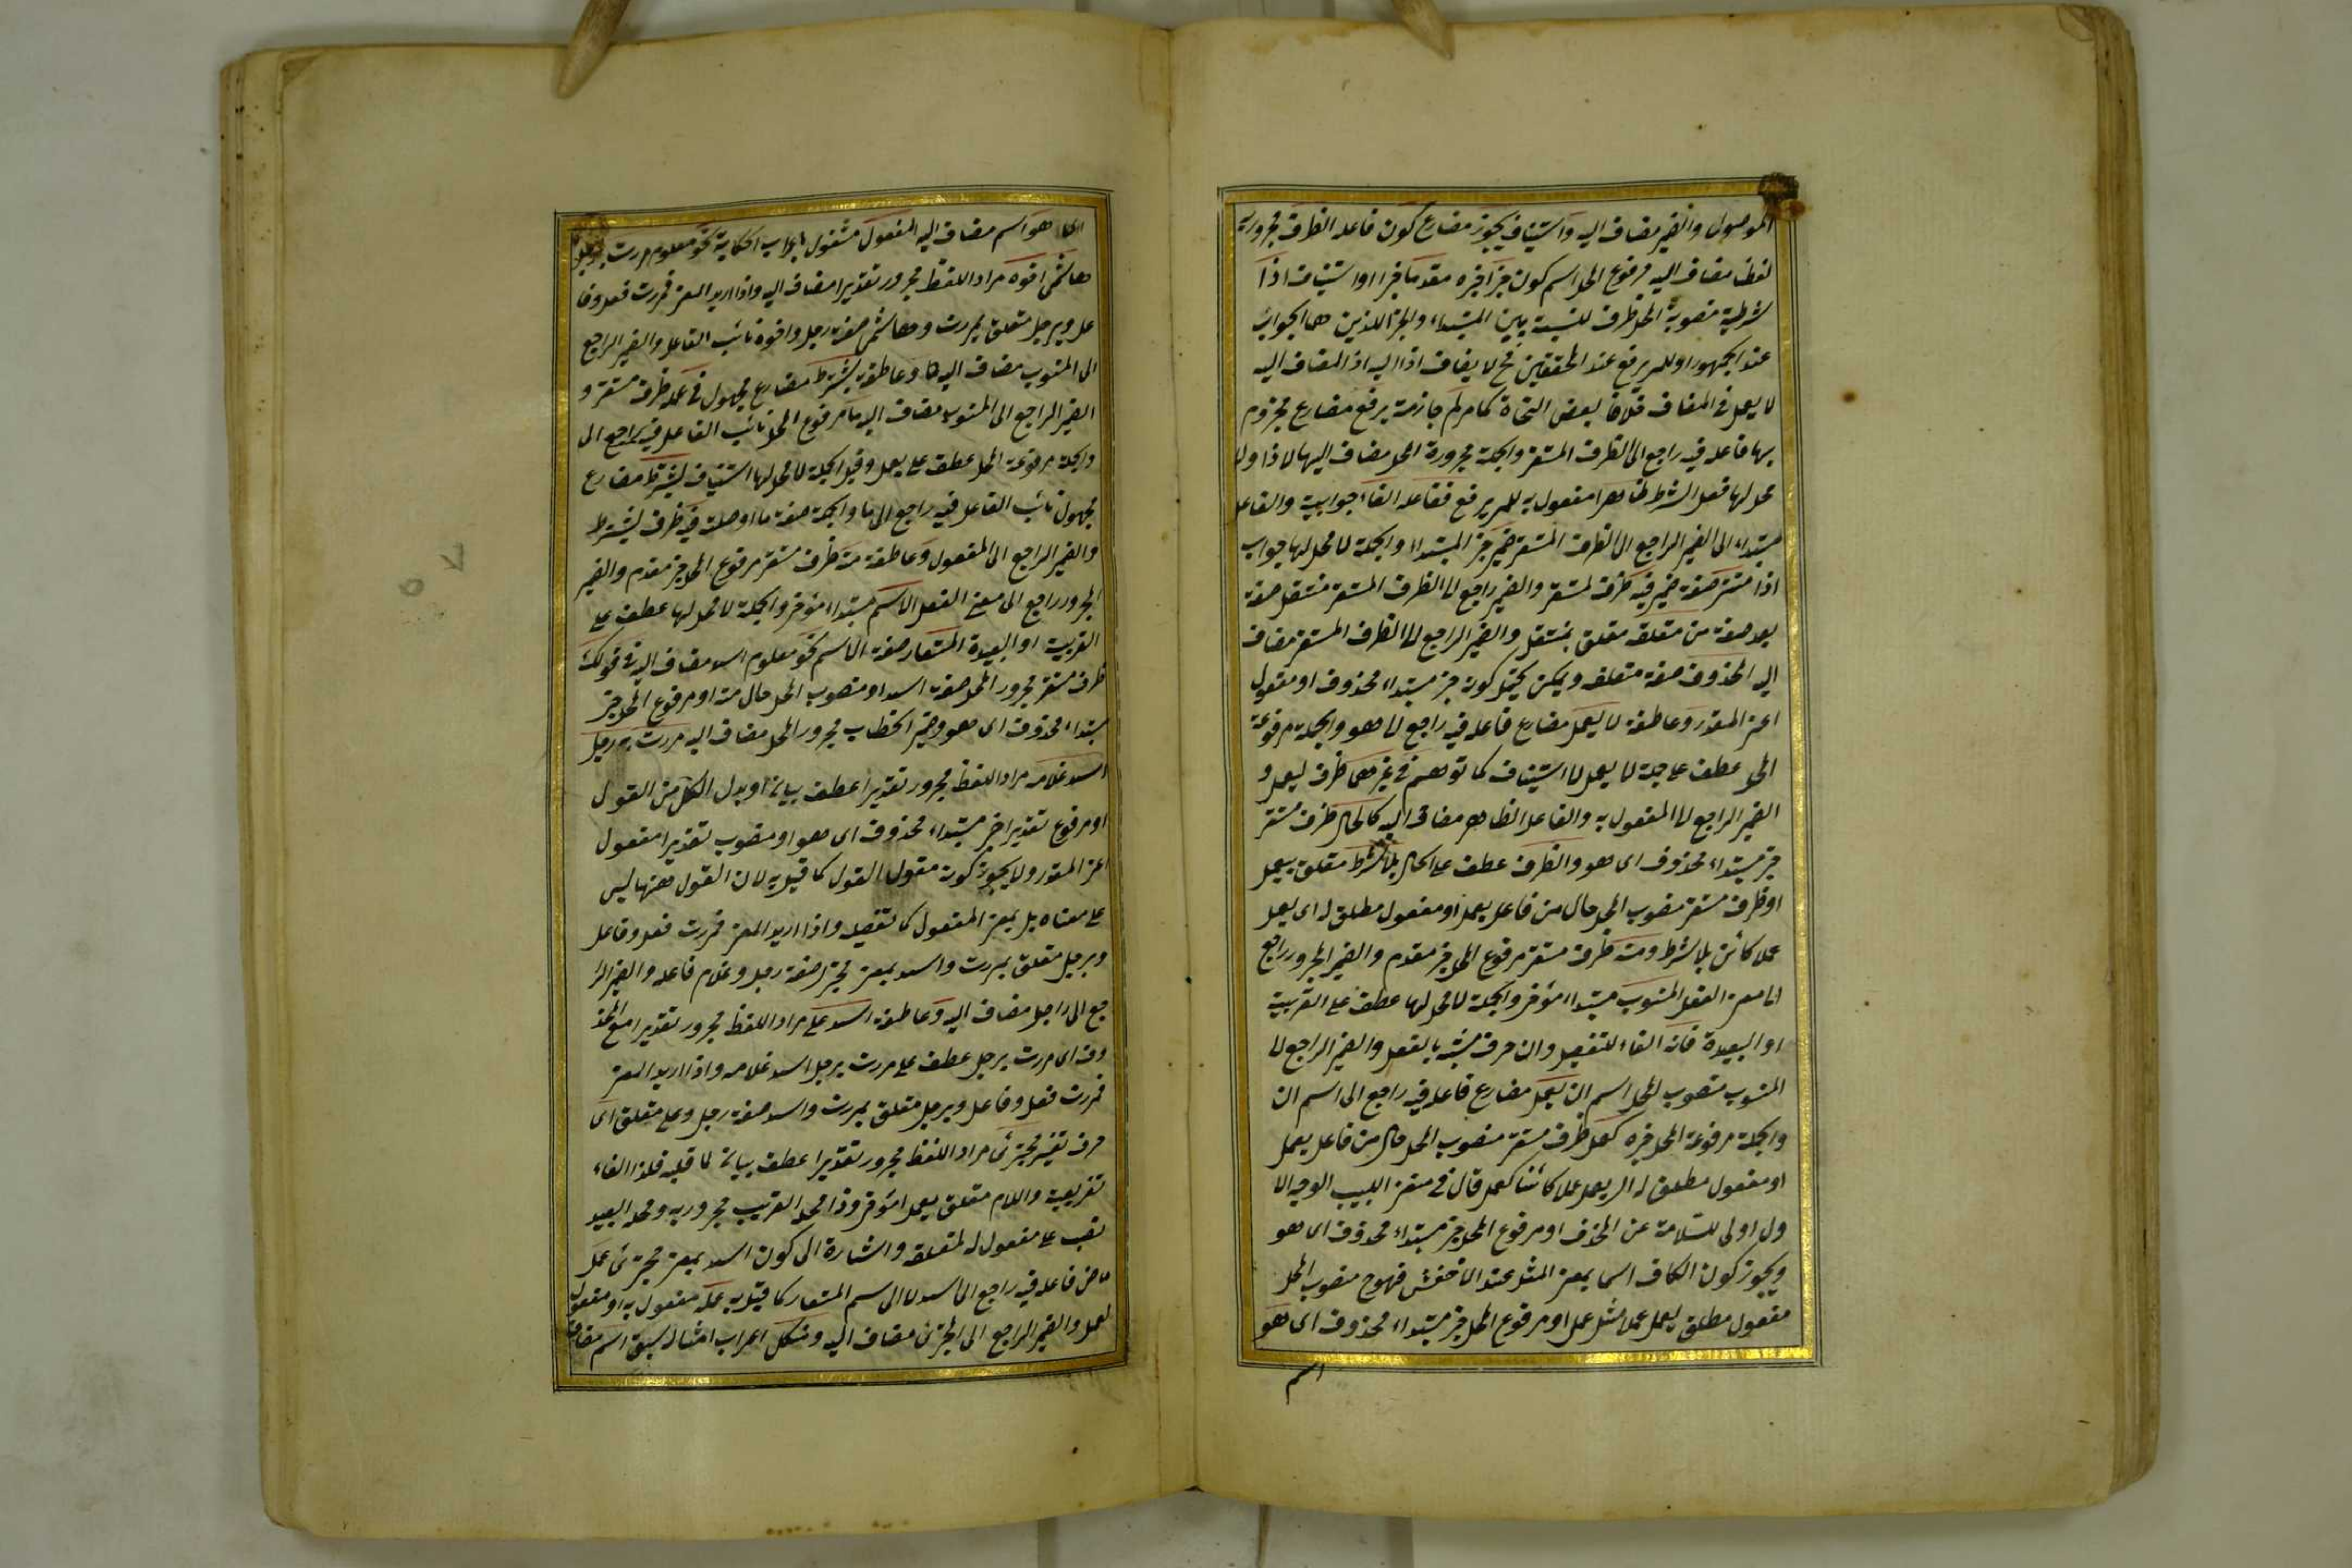 الموصول والضمير مضاف اليه واستيناف يجوز مضارع كون فاعله الظرف مجرور به
لفظا مضاف اليه مرفوع المحل اسم كون خبرا خبره مقدما خبر او استيناف اذا
شرطية منصوبة المحل ظرف للنسبة بين المبتداء والخبر اللذين هما الجواب
عند الجمهور او للم يرفع عند المحققين فح لا يضاف اذا اليه اذ المضاف اليه
لا يعمل في المضاف خلافا لبعض النحاة كما مر لم جازمة يرفع مضارع مجزوم
بها فاعله فيه راجع الى الظرف المستقر والجملة مجرورة المحل مضاف اليها لاذا ولا
محل لها فعل الشرط ظاهرا مفعول به للم يرفع ففاعله الفاء جوابية والفاعل
مبتداء الى الضمير الراجع الى الظرف المستقر ضمير خبر المبتداء والجملة لا محل لها جواب
اذا مستتر صفة ضمير فيه ظرف لمستتر والضمير راجع الى الظرف المستقر منتقل صفة
بعد صفة من متعلقه متعلق بمنتقل والضمير الراجع الى الظرف المستقر مضاف
اليه المحذوف صفة متعلقه ويمكن يحتمل كونه خبر مبتداء محذوف او مفعول
اعنى المقدر وعاطفة لا يعمل مضارع فاعله فيه راجع الى هو والجملة مرفوعة
المحل عطف على جملة لا يعمل لا استيناف كما توهم في غيرهما ظرف ليعمل و
الضمير الراجع الى المفعول به والفاعل الظاهر مضاف اليه كالحال ظرف مستقر
خبر مبتداء محذوف اى هو والظرف عطف على الحال بلا شرط متعلق بيعمل
او ظرف مستقر منصوب المحل حال من فاعل يعمل او مفعول مطلق له اى يعمل
عملا كائن بلا شرط ومنه ظرف مستقر مرفوع المحل خبر مقدم والضمير المجرور راجع
الى معنى الفعل المنسوب مبتداء مؤخر والجملة لا محل لها عطف على القريبة
او البعيدة فانه الفاء للتفصيل وان حرف مشبه بالفعل والضمير الراجع الى
المنسوب منصوب المحل اسم ان يعمل مضارع فاعله فيه راجع الى اسم ان
والجملة مرفوعة المحل خبره كعمل ظرف مستقر منصوب المحل حال من فاعل يعمل
او مفعول مطلق له اى يعمل عملا كائنا كعمل قال في مغنى اللبيب الوجه الا
ول اولى للسلامة عن الحذف او مرفوع المحل خبر مبتداء محذوف اى هو
ويجوز كون الكاف اسما بمعنى المثل عند الاخفش فهو ح منصوب المحل
مفعول مطلق ليعمل عملا مثل عمل او مرفوع المحل خبر مبتداء محذوف اى هو
اسم
هو اسم مضاف اليه المفعول مشغول باعراب الحكاية نحو معلوم مررت برجل
هاشمى اخوه مراد اللفظ مجرور تقديرا مضاف اليه واذا اريد المعنى فمررت فعل وفا
عل وبرجل متعلق بمررت وهاشمى صفة رجل واخوه نائب الفاعل والضمير الراجع
الى المنسوب مضاف اليه وعاطفة يشترط مضارع مجهول في عمله ظرف مستقر و
الضمير الراجع الى المنسوب مضاف اليه ما مرفوع المحل نائب الفاعل فيه راجع الى
والجملة مرفوعة المحل عطف على يعمل وقيل الجملة لا محل لها استيناف يشترط مضارع
مجهول نائب الفاعل فيه راجع الى ما والجملة صفة ما او صلته فيه ظرف ليشترط
والضمير الراجع الى المفعول وعاطفة منه ظرف مستقر مرفوع المحل خبر مقدم والضمير
المجرور راجع الى معنى الفعل الاسم مبتداء مؤخر والجملة لا محل لها عطف على
القريبة او البعيدة المستعار صفة الاسم نحو معلوم اسد مضاف اليه في قولك
ظرف مستقر مجرور المحل صفة اسد او منصوب المحل حال منه او مرفوع المحل خبر
مبتداء محذوف اى هو وضمير الخطاب مجرور المحل مضاف اليه مررت برجل
اسد غلامه مراد اللفظ مجرور تقديرا عطف بيان او بدل الكل من القول
او مرفوع تقديرا خبر مبتداء محذوف اى هو او منصوب تقديرا مفعول
اعنى المقدر ولا يجوز كونه مقول القول كما قيل به لان القول ههنا ليس
على معناه بل بمعنى المفعول كما تفصيله واذا اريد المعنى فمررت فعل وفاعل
وبرجل متعلق بمررت واسد بمعنى مجترئ صفة رجل وغلام فاعله والضمير الرا
جع الى راجل مضاف اليه وعاطفة اسد على مراد اللفظ مجرور تقديرا مع المحذ
وف اى مررت برجل عطف على مررت برجل اسد غلامه واذا اريد المعنى
فمررت فعل وفاعل وبرجل متعلق بمررت واسد صفة رجل وعلى متعلق اى
حرف تفسير مجترئ مراد اللفظ مجرور تقديرا عطف بيان لما قبله فلذا الفاء
تفريعية واللام متعلق بيعمل مؤخر وذا محله القريب مجرور به ومحله البعيد
نصب على مفعول له لمتعلقه واشارة الى كون اسد بمعنى مجترئ عمل
ماض فاعله فيه راجع الى اسد لا الى اسم المستعار كما قيل به عمله مفعول به او مفعول
لعمل والضمير الراجع الى المجترئ مضاف اليه ومشكل اعراب امثاله سبق اسم مضاف